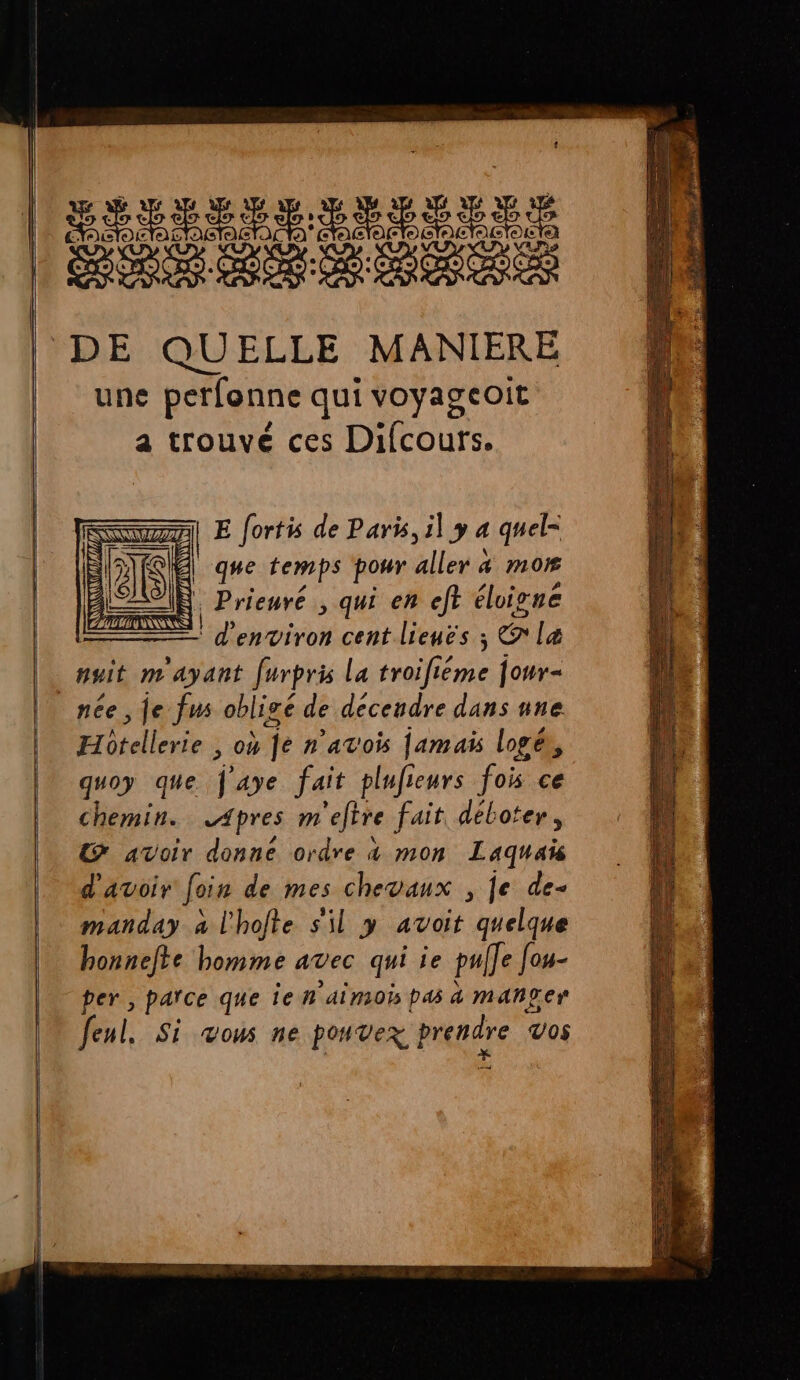 DE QUELLE MANIERE
une perſonne qui voyageoit
a trouvé ces Diſcours.
JE ſortis de Paris, il y a quel-
que temps pour aller à mon
Prieuré , qui en eſt éloigné
d'environ cent lieuës ; & la
nuit m'ayant ſurpris la troiſiéme jour-
née, je fus obligé de décendre dans une
Hôtellerie , où je n'avois jamais logé,
quoy que j'aye fait pluſieurs fois ce
chemin. Apres m'eſtre fait déboter,
& avoir donné ordre à mon Laquais
d'avoir ſoin de mes chevaux , je de-
manday à l'hoſte s'il y avoit quelque
honneſte homme avec qui ie puſſe ſou-
per , parce que ie n'aimois pas à manger
ſeul. Si vous ne pouvez prendre vos
*